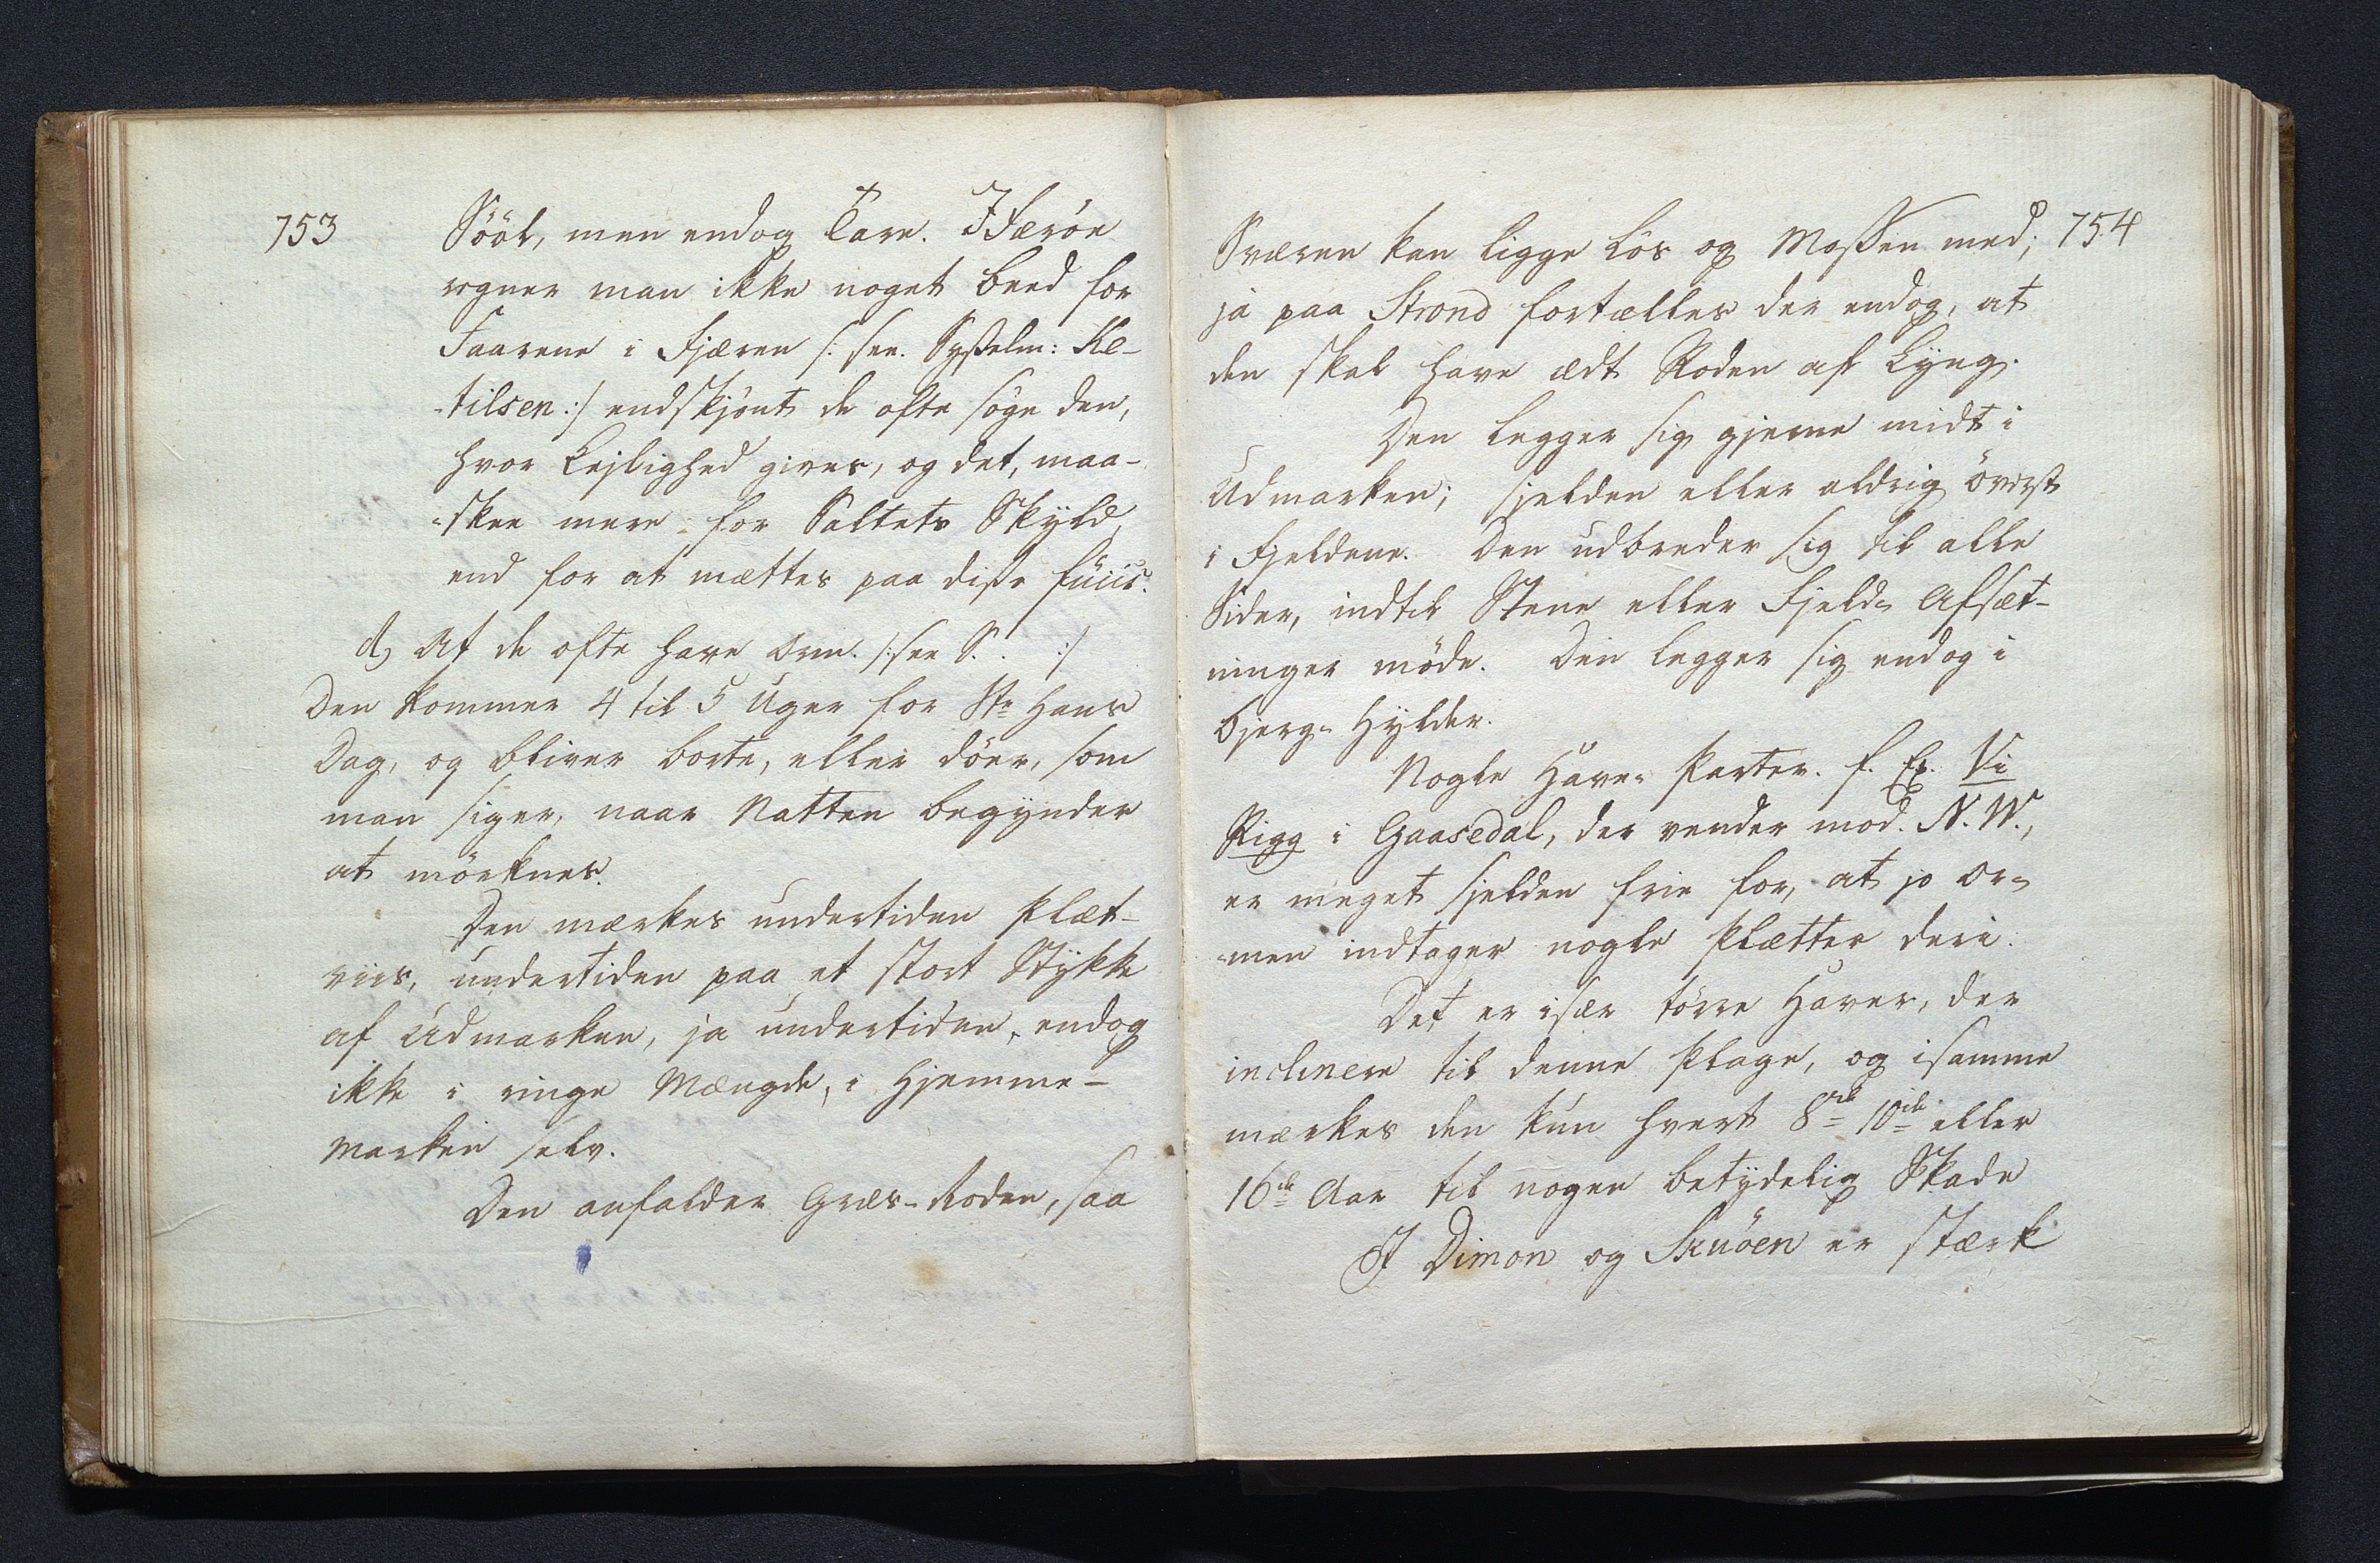 753
Sööl, men endog Tare. I Færöe
regner man ikke noget Beed for
Faarene i Fjæren /: see. Sysselm: Ke-
-tilsen :/ endskjönt de ofte söge den,
hvor Lejlighed gives, og det, maa-
-skee mere for Saltets Skyld,
end for at mættes paa disse
d, At de ofte have Orm. /: see S. . :/
Den kommer 4 til 5 Uger for Ste Hans
Dag, og bliver borte, eller döer, som
man siger, naar Natten begynder
at mörknes.
Den mærkes undertiden Plæt-
viis, undertiden paa et stort Stykke
af Udmarken, ja undertiden, endog
ikke i ringe Mængde, i Hjemme-
Marken selv.
Den anfalder Græs-Roden, saa
754
Sværen kan ligge lös og Mossen med;
ja paa Strond fortælles der endog, at
den skal have ædt Roden af Lyng.
Den legger sig gjerne midt i
Udmarken; sjelden eller aldrig överst
i Fjeldene. Den udbreder sig til alle
Sider, indtil Stene eller Fjeld- Afsæt-
ninger möde. Den legger sig endog i
Bjerg- Hylder.
Nogle Have- Parter. f. Ex. Vi
Rigg i Gaasedal, der vender mod. N. W.,
er meget sjelden frie for, at jo Or-
-men indtager nogle Plætter deri.
Det er især törre Haver, der
inclinere til denne Plage, og i samme
mærkes den kun hvert 8de 10de eller
16de Aar til nogen betydelig Skade
I Dimon og Skuöen er stærk